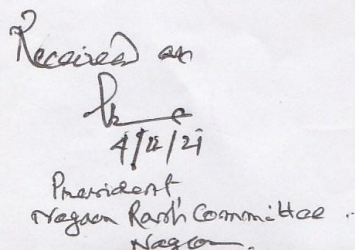 Received on
4/12/21
President
Nagaon Rash Committee
Nagaon.